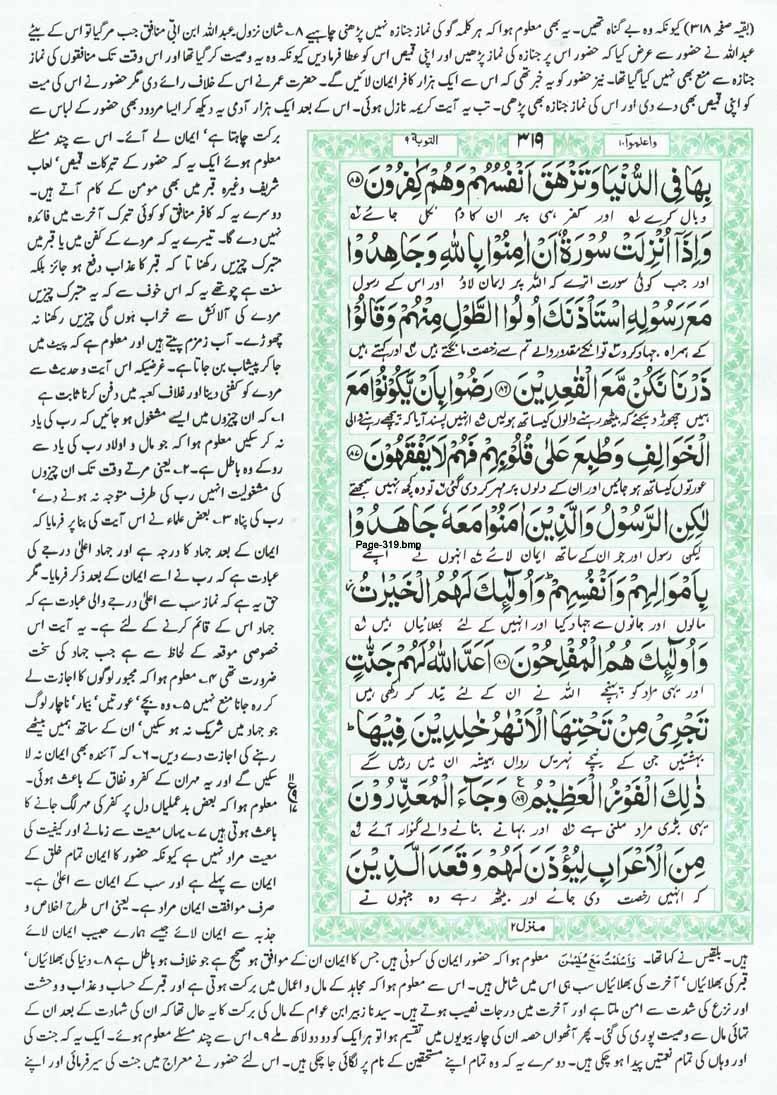 (بقیہ صفحہ ۳۱۸) کیونکہ وہ بے گناہ تھیں۔ یہ بھی معلوم ہوا کہ ہر کلمہ گو کی نماز جنازہ نہیں پڑھنی چاہیے ۸ شان نزول۔ عبداللہ ابن ابی منافق جب مر گیا تو اس کے بیٹے
عبداللہ نے حضور سے عرض کیا کہ حضور اس پر جنازہ کی نماز پڑھیں اور اپنی قمیص اس کو عطا فرما دیں کیونکہ وہ یہ وصیت کر گیا تھا اور اس وقت تک منافقوں کی نماز
جنازہ سے منع بھی نہیں کیا گیا تھا۔ نیز حضور کو یہ خبر تھی کہ اس سے ایک ہزار کافر ایمان لائیں گے۔ حضرت عمر نے اس کے خلاف رائے دی مگر حضور نے اس کی میت
کو اپنی قمیص بھی دے دی اور اس کی نماز جنازہ بھی پڑھی۔ تب یہ آیت کریمہ نازل ہوئی۔ اس کے بعد ایک ہزار آدمی یہ دیکھ کر ایسا مردود بھی حضور کے لباس سے
واعلموا ۱۰ ۳۱۹ التوبة ۹
بِهَا فِي الدُّنْيَا وَتَزْهَقَ اَنْفُسُهُمْ وَهُمْ كٰفِرُوْنَ ۸۵
وبال کرے اور کفر ہی پر ان کا دم نکل جائے
وَاِذَاۤ اُنْزِلَتْ سُوْرَةٌ اَنْ اٰمِنُوْا بِاللّٰهِ وَجَاهِدُوْا
اور جب کوئی سورت اترے کہ اللہ پر ایمان لاؤ اور اس کے رسول
مَعَ رَسُوْلِهِ اسْتَاْذَنَكَ اُولُوا الطَّوْلِ مِنْهُمْ وَقَالُوْا
کے ہمراہ جہاد کرو تو انکے مقدور والے تم سے رخصت مانگتے ہیں اور کہتے ہیں
ذَرْنَا نَكُنْ مَّعَ الْقٰعِدِيْنَ ۸۶ رَضُوْا بِاَنْ يَّكُوْنُوْا مَعَ
ہمیں چھوڑ دیجئے کہ بیٹھ رہنے والوں کیساتھ ہولیں انہیں پسند آیا کہ پیچھے رہنے والی
الْخَوَالِفِ وَطُبِعَ عَلٰى قُلُوْبِهِمْ فَهُمْ لَا يَفْقَهُوْنَ ۸۷
عورتوں کیساتھ ہو جائیں اور ان کے دلوں پر مہر کر دی گئی تو وہ کچھ نہیں سمجھتے
لٰكِنِ الرَّسُوْلُ وَالَّذِيْنَ اٰمَنُوْا مَعَهٗ جَاهَدُوْا
Page-319.bmp
لیکن رسول اور جو ان کے ساتھ ایمان لائے انہوں نے اپنے
بِاَمْوَالِهِمْ وَاَنْفُسِهِمْ وَاُولٰٓئِكَ لَهُمُ الْخَيْرٰتُ
مالوں اور جانوں سے جہاد کیا اور انہیں کے لئے بھلائیاں ہیں
وَاُولٰٓئِكَ هُمُ الْمُفْلِحُوْنَ ۸۸ اَعَدَّ اللّٰهُ لَهُمْ جَنّٰتٍ
اور یہی مراد کو پہنچے اللہ نے ان کے لئے تیار کر رکھی ہیں
تَجْرِيْ مِنْ تَحْتِهَا الْاَنْهٰرُ خٰلِدِيْنَ فِيْهَا
بہشتیں جن کے نیچے نہریں رواں ہمیشہ ان میں رہیں گے
ذٰلِكَ الْفَوْزُ الْعَظِيْمُ ۸۹ وَجَآءَ الْمُعَذِّرُوْنَ
یہی بڑی مراد ملنی ہے اور بہانے بنانے والے گنوار آئے
مِنَ الْاَعْرَابِ لِيُؤْذَنَ لَهُمْ وَقَعَدَ الَّذِيْنَ
کہ انہیں رخصت دی جائے اور بیٹھ رہے وہ جنہوں نے
منزل ۲
برکت چاہتا ہے' ایمان لے آئے۔ اس سے چند مسئلے
معلوم ہوئے ایک یہ کہ حضور کے تبرکات قمیص' لعاب
شریف وغیرہ قبر میں بھی مومن کے کام آتے ہیں۔
دوسرے یہ کہ کافر منافق کو کوئی تبرک آخرت میں فائدہ
نہیں دے گا۔ تیسرے یہ کہ مردے کے کفن میں یا قبر میں
متبرک چیزیں رکھنا تا کہ قبر کا عذاب دفع ہو جائز بلکہ
سنت ہے چوتھے یہ کہ اس خوف سے کہ یہ متبرک چیزیں
مردے کی آلائش سے خراب ہوں گی چیزیں رکھنا نہ
چھوڑے۔ آب زمزم پیتے ہیں اور معلوم ہے کہ پیٹ میں
جا کر پیشاب بن جاتا ہے۔ غرضیکہ اس آیت و حدیث سے
مردے کو کفنی دینا اور غلاف کعبہ میں دفن کرنا ثابت ہے
۱۔ کہ ان چیزوں میں ایسے مشغول ہو جائیں کہ رب کی یاد
نہ کر سکیں معلوم ہوا کہ جو مال و اولاد رب کی یاد سے
روکے وہ باطل ہے۔ ۲۔ یعنی مرتے وقت تک ان چیزوں
کی مشغولیت انہیں رب کی طرف متوجہ نہ ہونے دے'
رب کی پناہ ۳۔ بعض علماء نے اس آیت کی بنا پر فرمایا کہ
ایمان کے بعد جہاد کا درجہ ہے اور جہاد اعلیٰ درجے کی
عبادت ہے کہ رب نے اسے ایمان کے بعد ذکر فرمایا۔ مگر
حق یہ ہے کہ نماز سب سے اعلیٰ درجے والی عبادت ہے کہ
جہاد اس کے قائم کرنے کے لئے ہے۔ یہ آیت اس
خصوصی موقعہ کے لحاظ سے ہے جب جہاد کی سخت
ضرورت تھی ۴۔ معلوم ہوا کہ مجبور لوگوں کا اجازت لے
کر رہ جانا منع نہیں ۵۔ وہ بچے' عورتیں' بیمار' ناچار لوگ
جو جہاد میں شریک نہ ہو سکیں' ان کے ساتھ ہمیں بیٹھے
رہنے کی اجازت دے دیں۔ ۶۔ کہ آئندہ بھی ایمان نہ لا
سکیں گے اور یہ مہران کے کفر و نفاق کے باعث ہوئی۔
معلوم ہوا کہ بعض بدعملیاں دل پر کفر کی مہر لگ جانے کا
باعث ہوتی ہیں ۷۔ یہاں معیت سے زمانے اور کیفیت کی
معیت مراد نہیں ہے کیونکہ حضور کا ایمان تمام خلق کے
ایمان سے پہلے ہے اور سب کے ایمان سے اعلیٰ ہے۔
صرف موافقت ایمان مراد ہے۔ یعنی اس طرح اخلاص و
جذبہ سے ایمان لائے جیسے ہمارے حبیب ایمان لائے
ہیں۔ بلقیس نے کہا تھا۔ وَاَسْلَمْتُ مَعَ سُلَيْمٰنَ معلوم ہوا کہ حضور ایمان کی کسوٹی ہیں جس کا ایمان ان کے موافق ہو صحیح ہے جو خلاف ہو باطل ہے ۸۔ دنیا کی بھلائیاں'
قبر کی بھلائیاں' آخرت کی بھلائیاں سب ہی اس میں شامل ہیں۔ اس سے معلوم ہوا کہ مجاہد کے مال و اعمال میں برکت ہوتی ہے اور قبر کے حساب و عذاب و وحشت
اور نزع کی شدت سے امن ملتا ہے اور آخرت میں درجات نصیب ہوتے ہیں۔ سیدنا زبیر ابن عوام کے مال کی برکت کا یہ حال تھا کہ ان کی شہادت کے بعد ان کے
تہائی مال سے وصیت پوری کی گئی۔ پھر آٹھواں حصہ ان کی چار بیویوں میں تقسیم ہوا تو ہر ایک کو دو دو لاکھ ملے ۹۔ اس سے چند مسئلے معلوم ہوئے۔ ایک یہ کہ جنت کی
اور وہاں کی تمام نعمتیں پیدا ہو چکی ہیں۔ دوسرے یہ کہ وہ تمام اپنے مستحقین کے نام پر لگائی جا چکی ہیں۔ اس لئے حضور نے معراج میں جنت کی سیر فرمائی اور اپنے